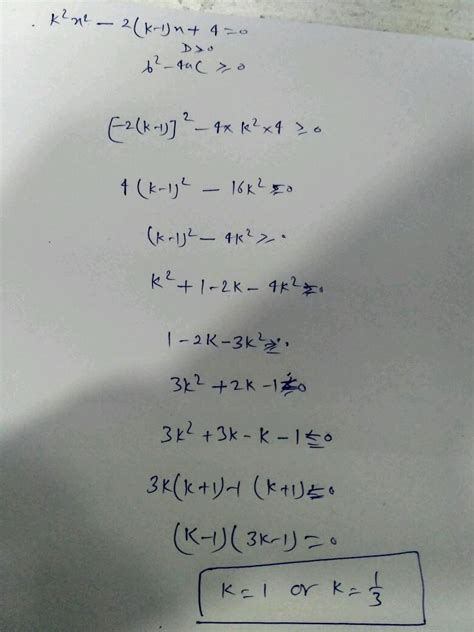 k²x² - 2(k-1)x + 4 = 0
D ≥ 0
b² - 4ac ≥ 0
[-2(k-1)]² - 4 × k² × 4 ≥ 0
4(k-1)² - 16k² ≥ 0
(k-1)² - 4k² ≥ 0
k² + 1 - 2k - 4k² ≥ 0
1 - 2k - 3k² ≥ 0
3k² + 2k - 1 ≤ 0
3k² + 3k - k - 1 ≤ 0
3k(k+1) - 1(k+1) ≤ 0
(k-1)(3k-1) = 0
k = 1 or k = 1/3